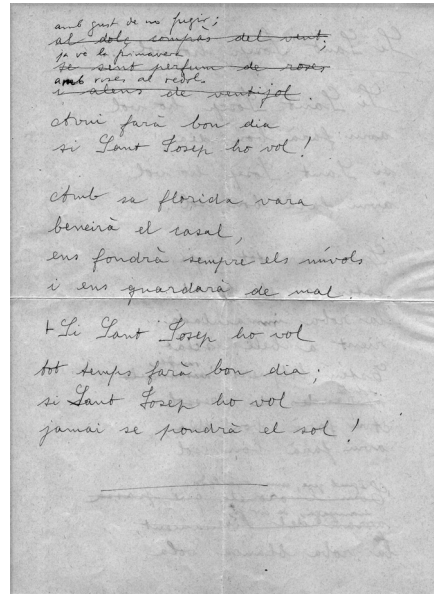 amb gust de no fugir;
al dolç compàs del vent;
ja ve la primavera
se sent perfum de roses
amb roses al redols
i alens de ventijol.
Avui farà bon dia
si Sant Josep ho vol!
Amb sa florida vara
beneirà el casal,
ens fondrà sempre els núvols
i ens guardarà de mal.
Si Sant Josep ho vol
tot temps farà bon dia;
si Sant Josep ho vol
jamai se pondrà el sol!